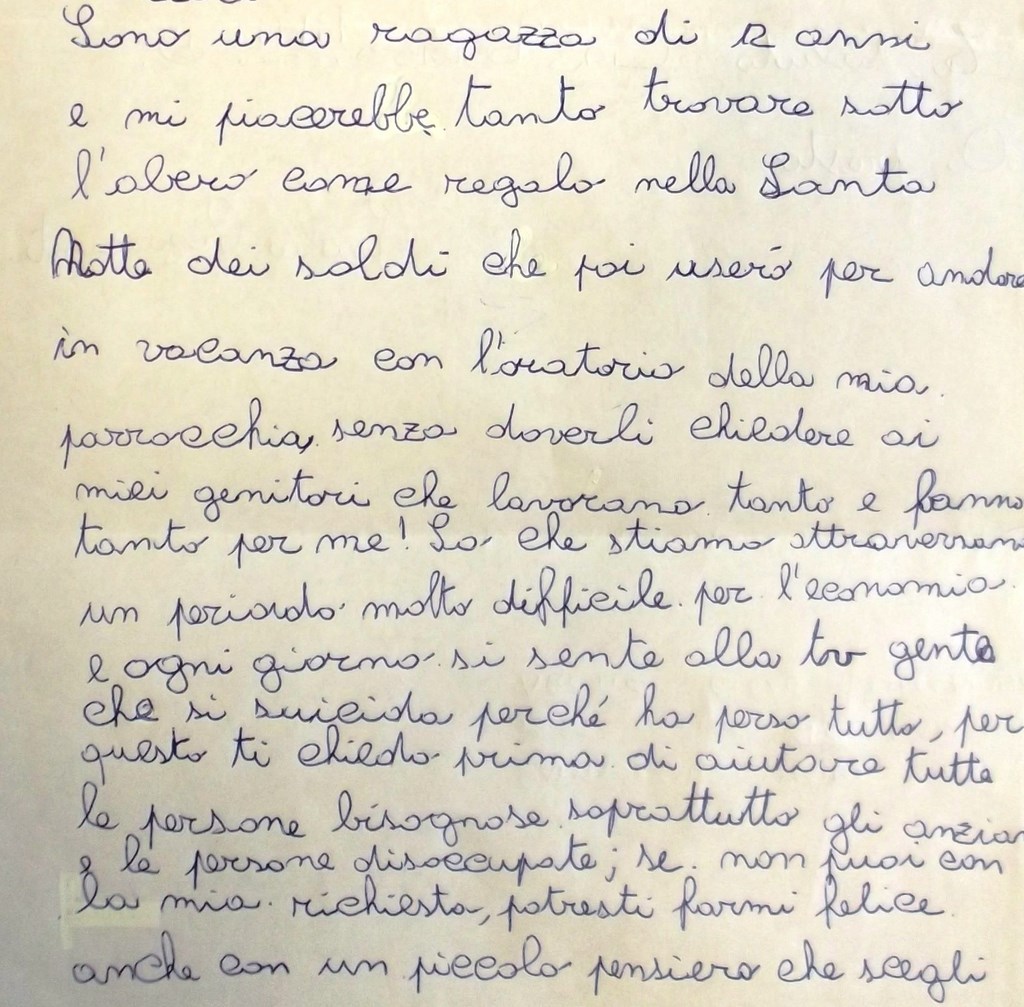 Sono una ragazza di 12 anni
e mi piacerebbe tanto trovare sotto
l'albero come regalo nella Santa
Notte dei soldi che poi userò per andare
in vacanza con l'oratorio della mia
parrocchia, senza doverli chiedere ai
miei genitori che lavorano tanto e fanno
tanto per me! So che stiamo attraversan
un periodo molto difficile per l'economia
e ogni giorno si sente alla tv gente
che si suicida perché ha perso tutto, per
questo ti chiedo prima di aiutare tutte
le persone bisognose soprattutto gli anzian
e le persone disoccupate; se non puoi con
la mia richiesta, potresti farmi felice
anche con un piccolo pensiero che scegli